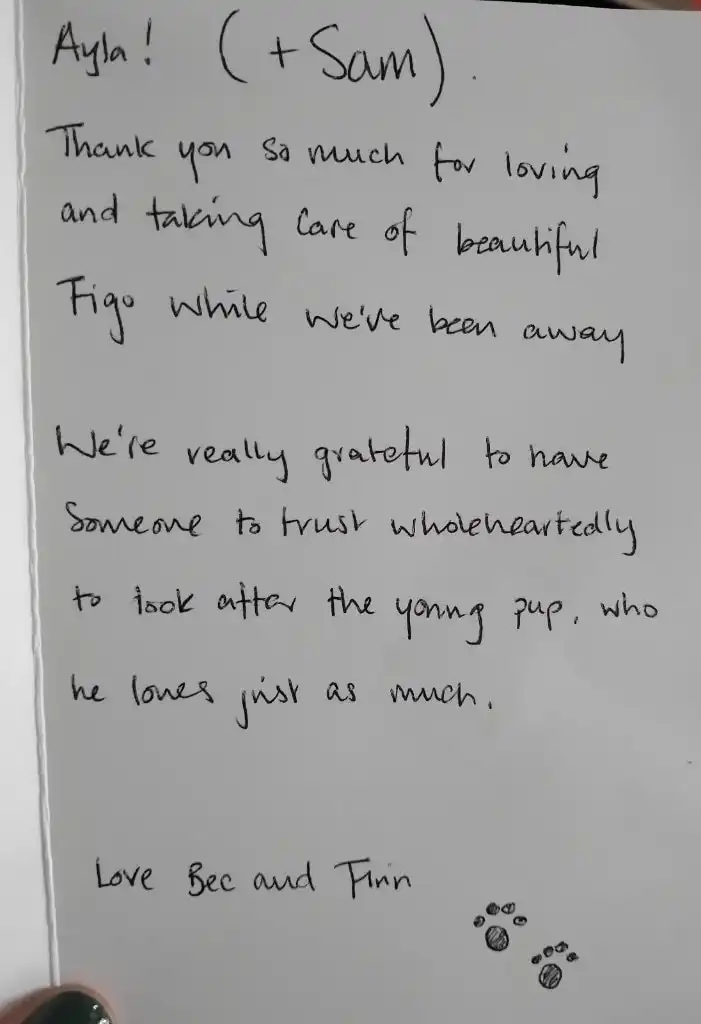 Ayla! (+ Sam).
Thank you so much for loving
and taking care of beautiful
Figo while we've been away
We're really grateful to have
someone to trust wholeheartedly
to look after the young pup, who
he loves just as much.
Love Bec and Finn